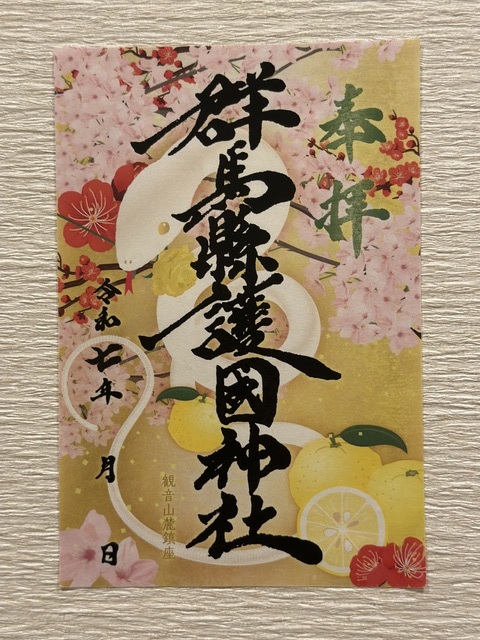 奉拝
群馬縣護國神社
観音山麓鎮座
令和七年 月 日